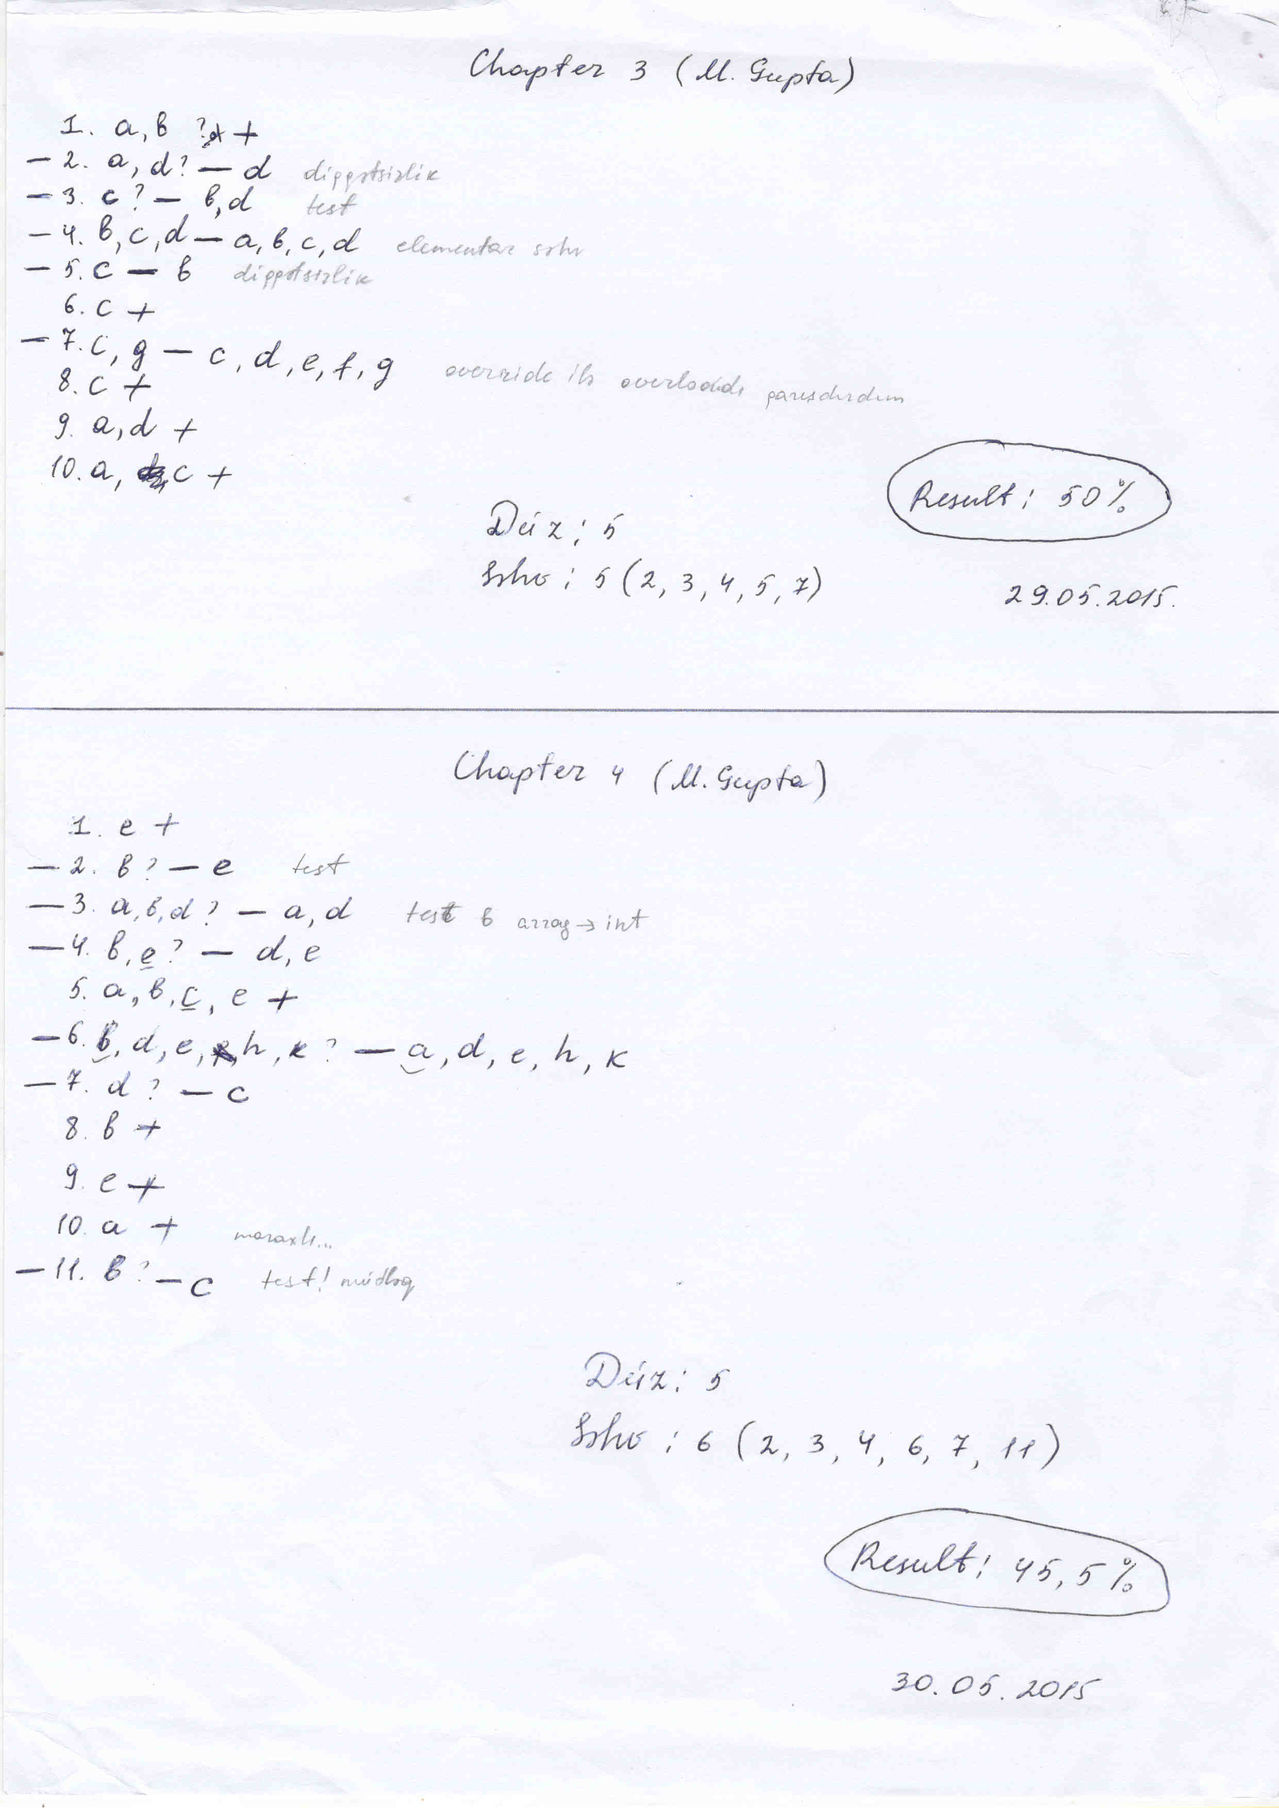 Chapter 3 (M. Gupta)
1. a, b ? +
— 2. a, d? — d diqqətsizlik
— 3. c? — b, d test
— 4. b, c, d — a, b, c, d elementar səhv
— 5. c — b diqqətsizlik
6. c +
— 7. c, g — c, d, e, f, g override ilə overloadda
8. c +
9. a, d +
10. a, c +
Result: 50%
Düz: 5
Səhv: 5 (2, 3, 4, 5, 7)
29.05.2015.
Chapter 4 (M. Gupta)
1. e +
— 2. b? — e test
— 3. a, b, d? — a, d test b array → int
— 4. b, e? — d, e
5. a, b, c, e +
— 6. b, d, e, h, k? — a, d, e, h, k
— 7. d? — c
8. b +
9. e +
10. a + maraqlı...
— 11. b? — c test! mütləq
Düz: 5
Səhv: 6 (2, 3, 4, 6, 7, 11)
Result: 45,5%
30.05.2015